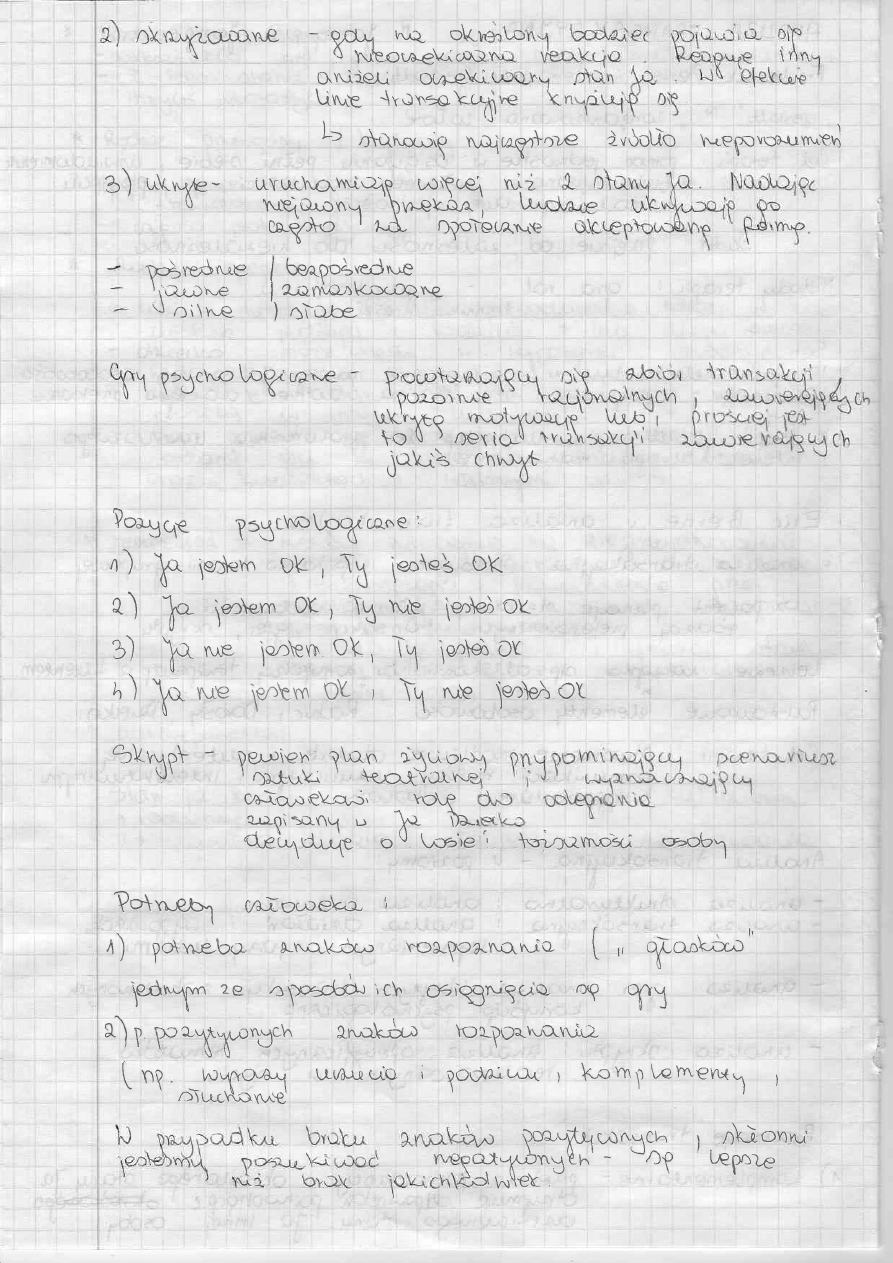 2) skrzyżowane - gdy na określony bodziec pojawia się
nieoczekiwana reakcja. Reaguje inny
aniżeli oczekiwany stan Ja. W efekcie
linie transakcyjne krzyżują się
↳ stanowią najczęstsze źródło nieporozumień
3) ukryte - uruchamiają więcej niż 2 stany Ja. Nadając
niejawny przekaz, ludzie ukrywają go
często za społecznie akceptowaną formą.
- pośrednie / bezpośrednie
- jawne / zamaskowane
- silne / słabe
Gry psychologiczne - powtarzający się zbiór transakcji,
pozornie racjonalnych, zawierających
ukrytą motywację lub, prościej jest
to seria transakcji zawierających
jakiś chwyt
Pozycje psychologiczne:
1) Ja jestem OK, Ty jesteś OK
2) Ja jestem OK, Ty nie jesteś OK
3) Ja nie jestem OK, Ty jesteś OK
4) Ja nie jestem OK, Ty nie jesteś OK
Skrypt - pewien plan życiowy przypominający scenariusz
sztuki teatralnej i wyznaczający
człowiekowi rolę do odegrania
zapisany w Ja Dziecko
decyduje o losie i tożsamości osoby
Potrzeby człowieka:
1) potrzeba znaków rozpoznania („głasków"
jednym ze sposobów ich osiągnięcia są gry
2) p. pozytywnych znaków rozpoznania
(np. wyrazy uczucia i podziwu, komplementy,
słuchanie
W przypadku braku znaków pozytywnych, skłonni
jesteśmy poszukiwać negatywnych - są lepsze
niż brak jakichkolwiek